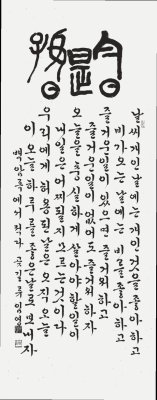 今是
날씨 개인날에는 개인것을 좋아하고
비가오는 날에는 비를 좋아하고
즐거운일이 있으면 즐거워하고
즐거운일이 없어도 즐거워하자
오늘을 충실하게 살아야할일이
내일은 어찌될지 모르는것이다
우리에게 허용된 날은 오직 오늘
이 오늘 하루를 좋은날로 보내자
백암록에서 적다